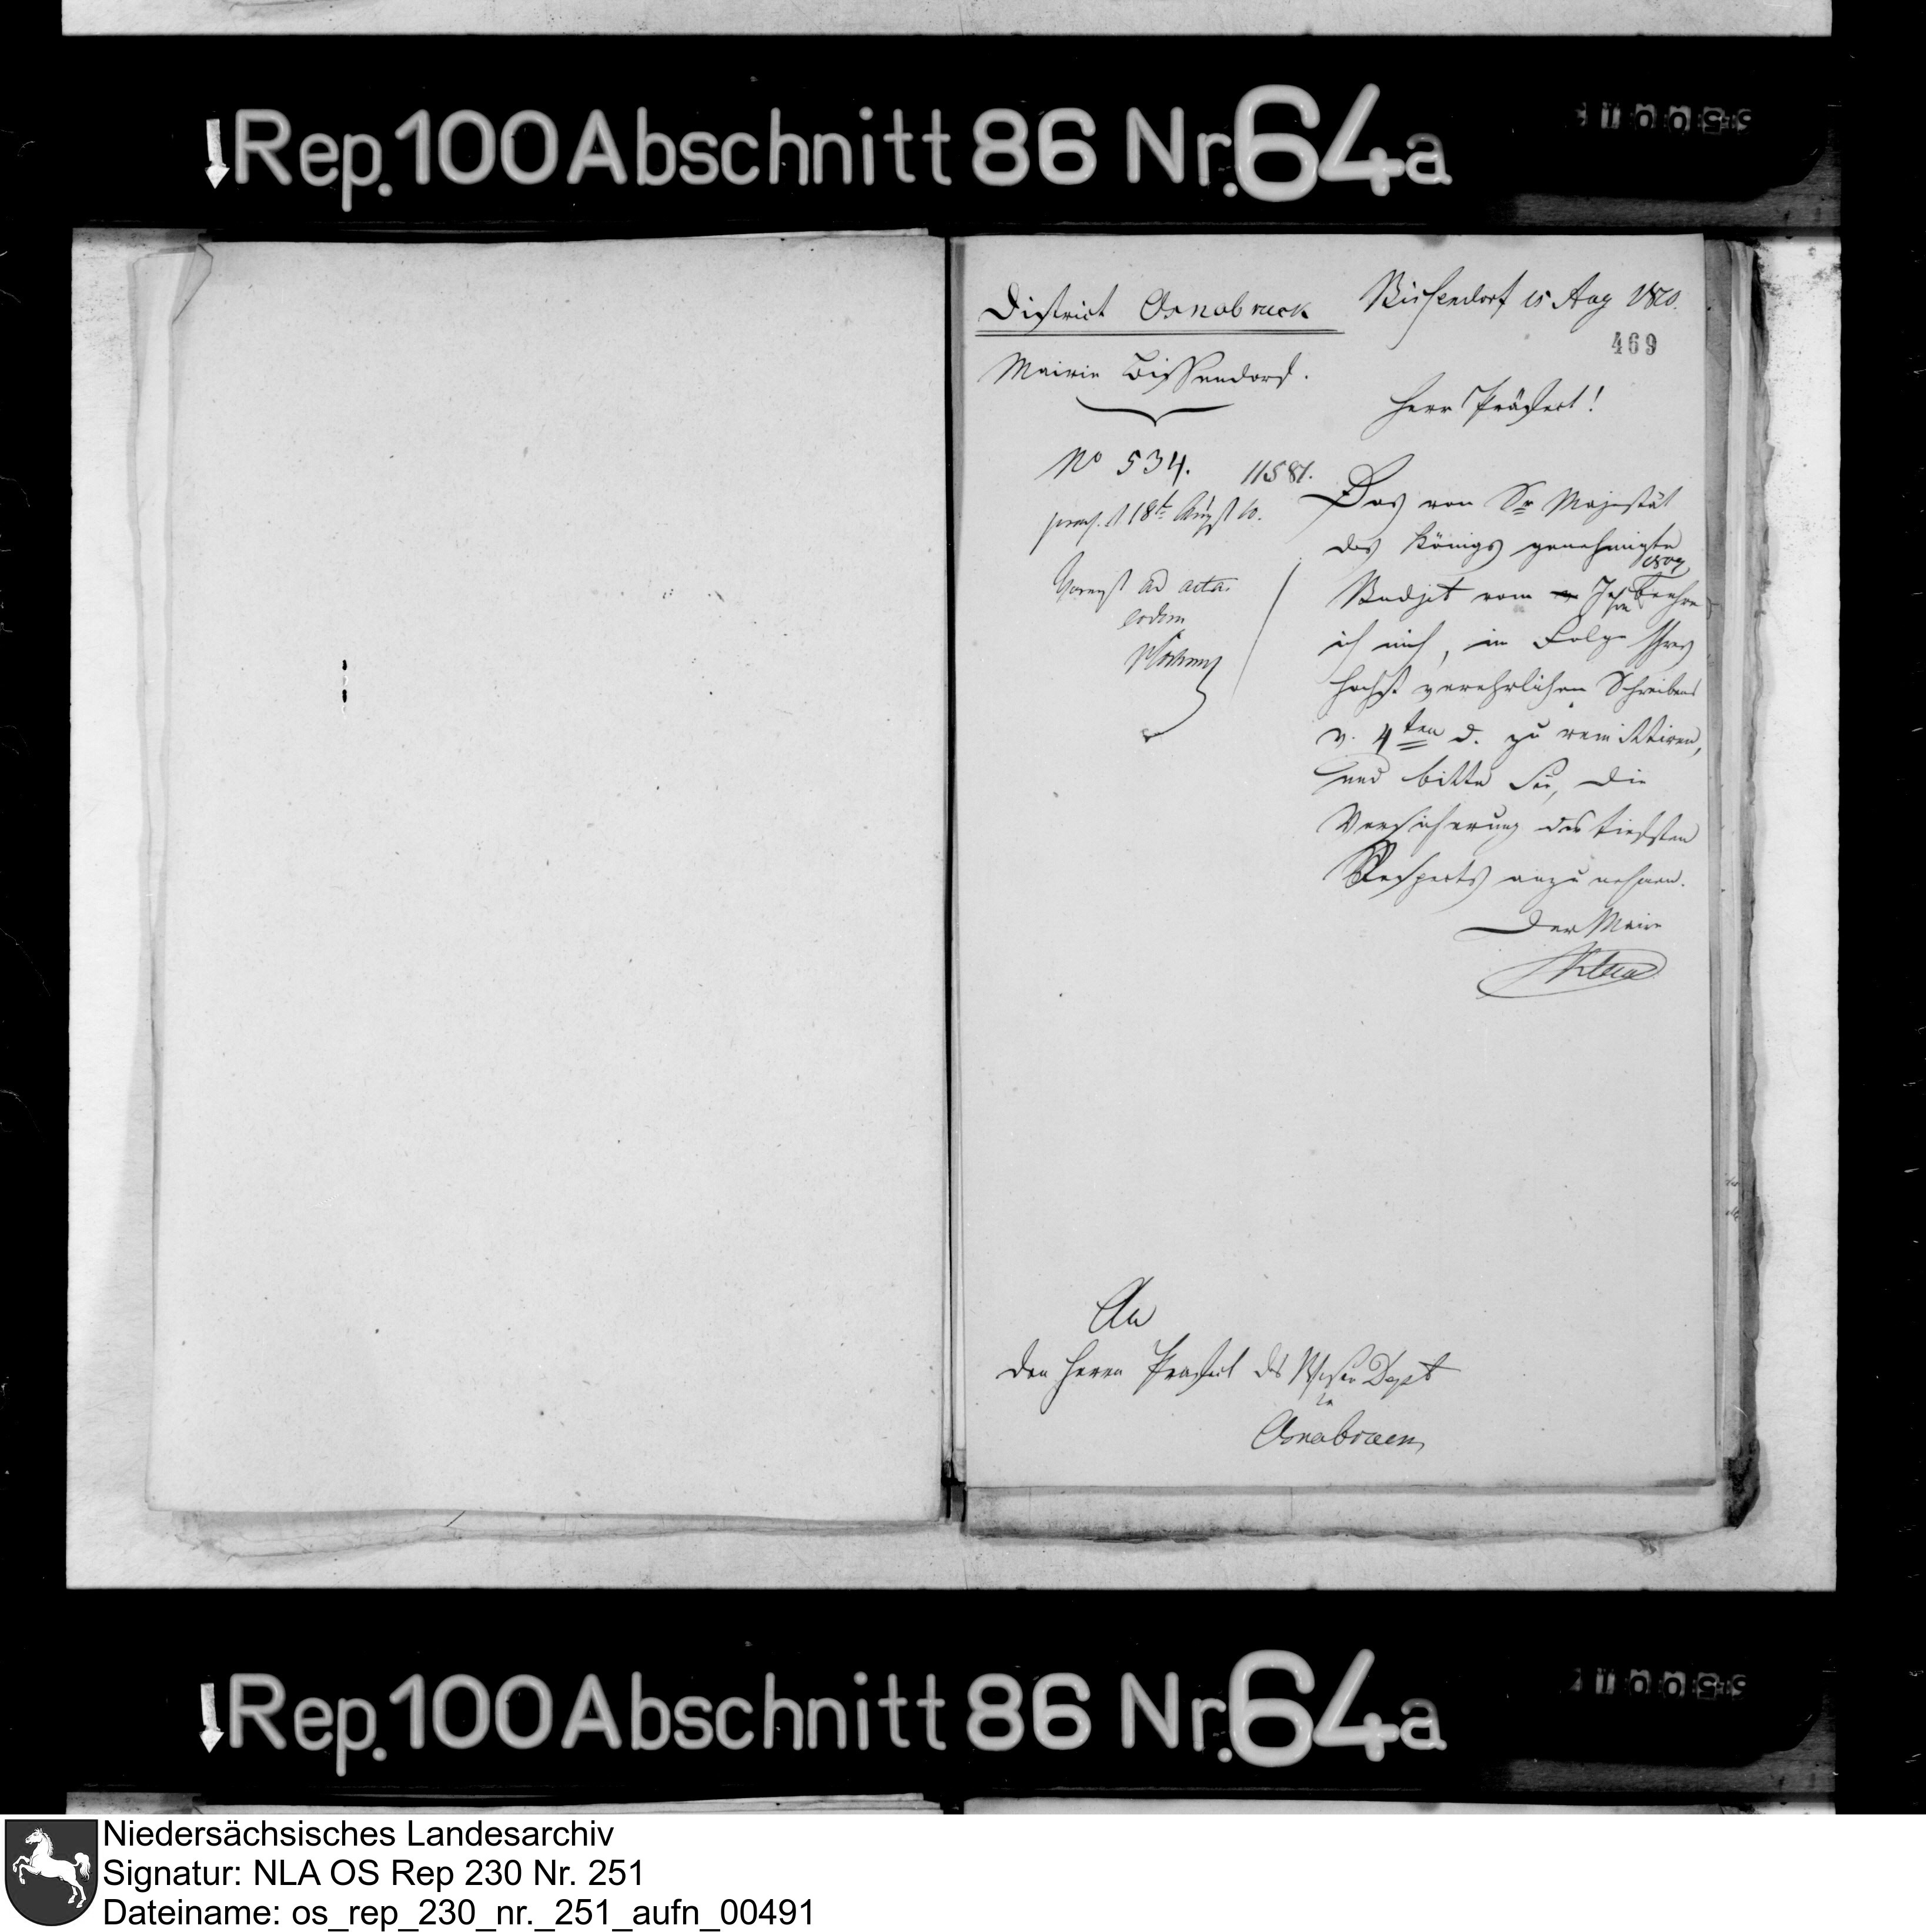 Rep. 100 Abschnitt 86 Nr. 64a
District Osnabruck
Bissendorf 15 Aug 1810.
469
Mairie Bissendorf.
Herr Präfect!
No 534.
11581.
praes. d 18t August 10.
ad acta
eodem
Das von Sr Majestät
des Königs genehmigte
Budjet vom Jahre 1809 beehre
ich mich, in Folge Ihres
höchst verehrlichen Schreibens
v. 4ten d. zu remittiren,
und bitte Sie, die
Versicherung des tiefsten
Respects anzunehmen.
Der Maire
An
den Herrn Präfect des Weser Depts
in
Osnabrück
Rep. 100 Abschnitt 86 Nr. 64a
Niedersächsisches Landesarchiv
Signatur: NLA OS Rep 230 Nr. 251
Dateiname: os_rep_230_nr._251_aufn_00491